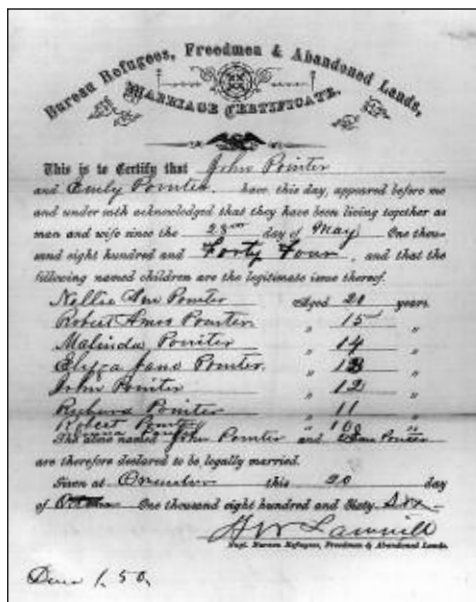 Bureau Refugees, Freedmen & Abandoned Lands,
MARRIAGE CERTIFICATE.
This is to Certify that John Pointer
and Emily Pointer, have, this day, appeared before me
and under oath acknowledged that they have been living together as
man and wife since the 28th day of May One thou-
sand eight hundred and Forty Four, and that the
following named children are the legitimate issue thereof.
Nellie Ann Pointer Aged 20 years.
Robert Amos Pointer " 15 "
Malinda Pointer " 14 "
Elizza Jane Pointer " 13 "
John Pointer " 12 "
Pointer " 11 "
Robert "
The above named John Pointer and Pointer
are therefore declared to be legally married.
Given at this 20 day
of One thousand eight hundred and Sixty Six
Supt. Bureau Refugees, Freedmen & Abandoned Lands.
1.50.